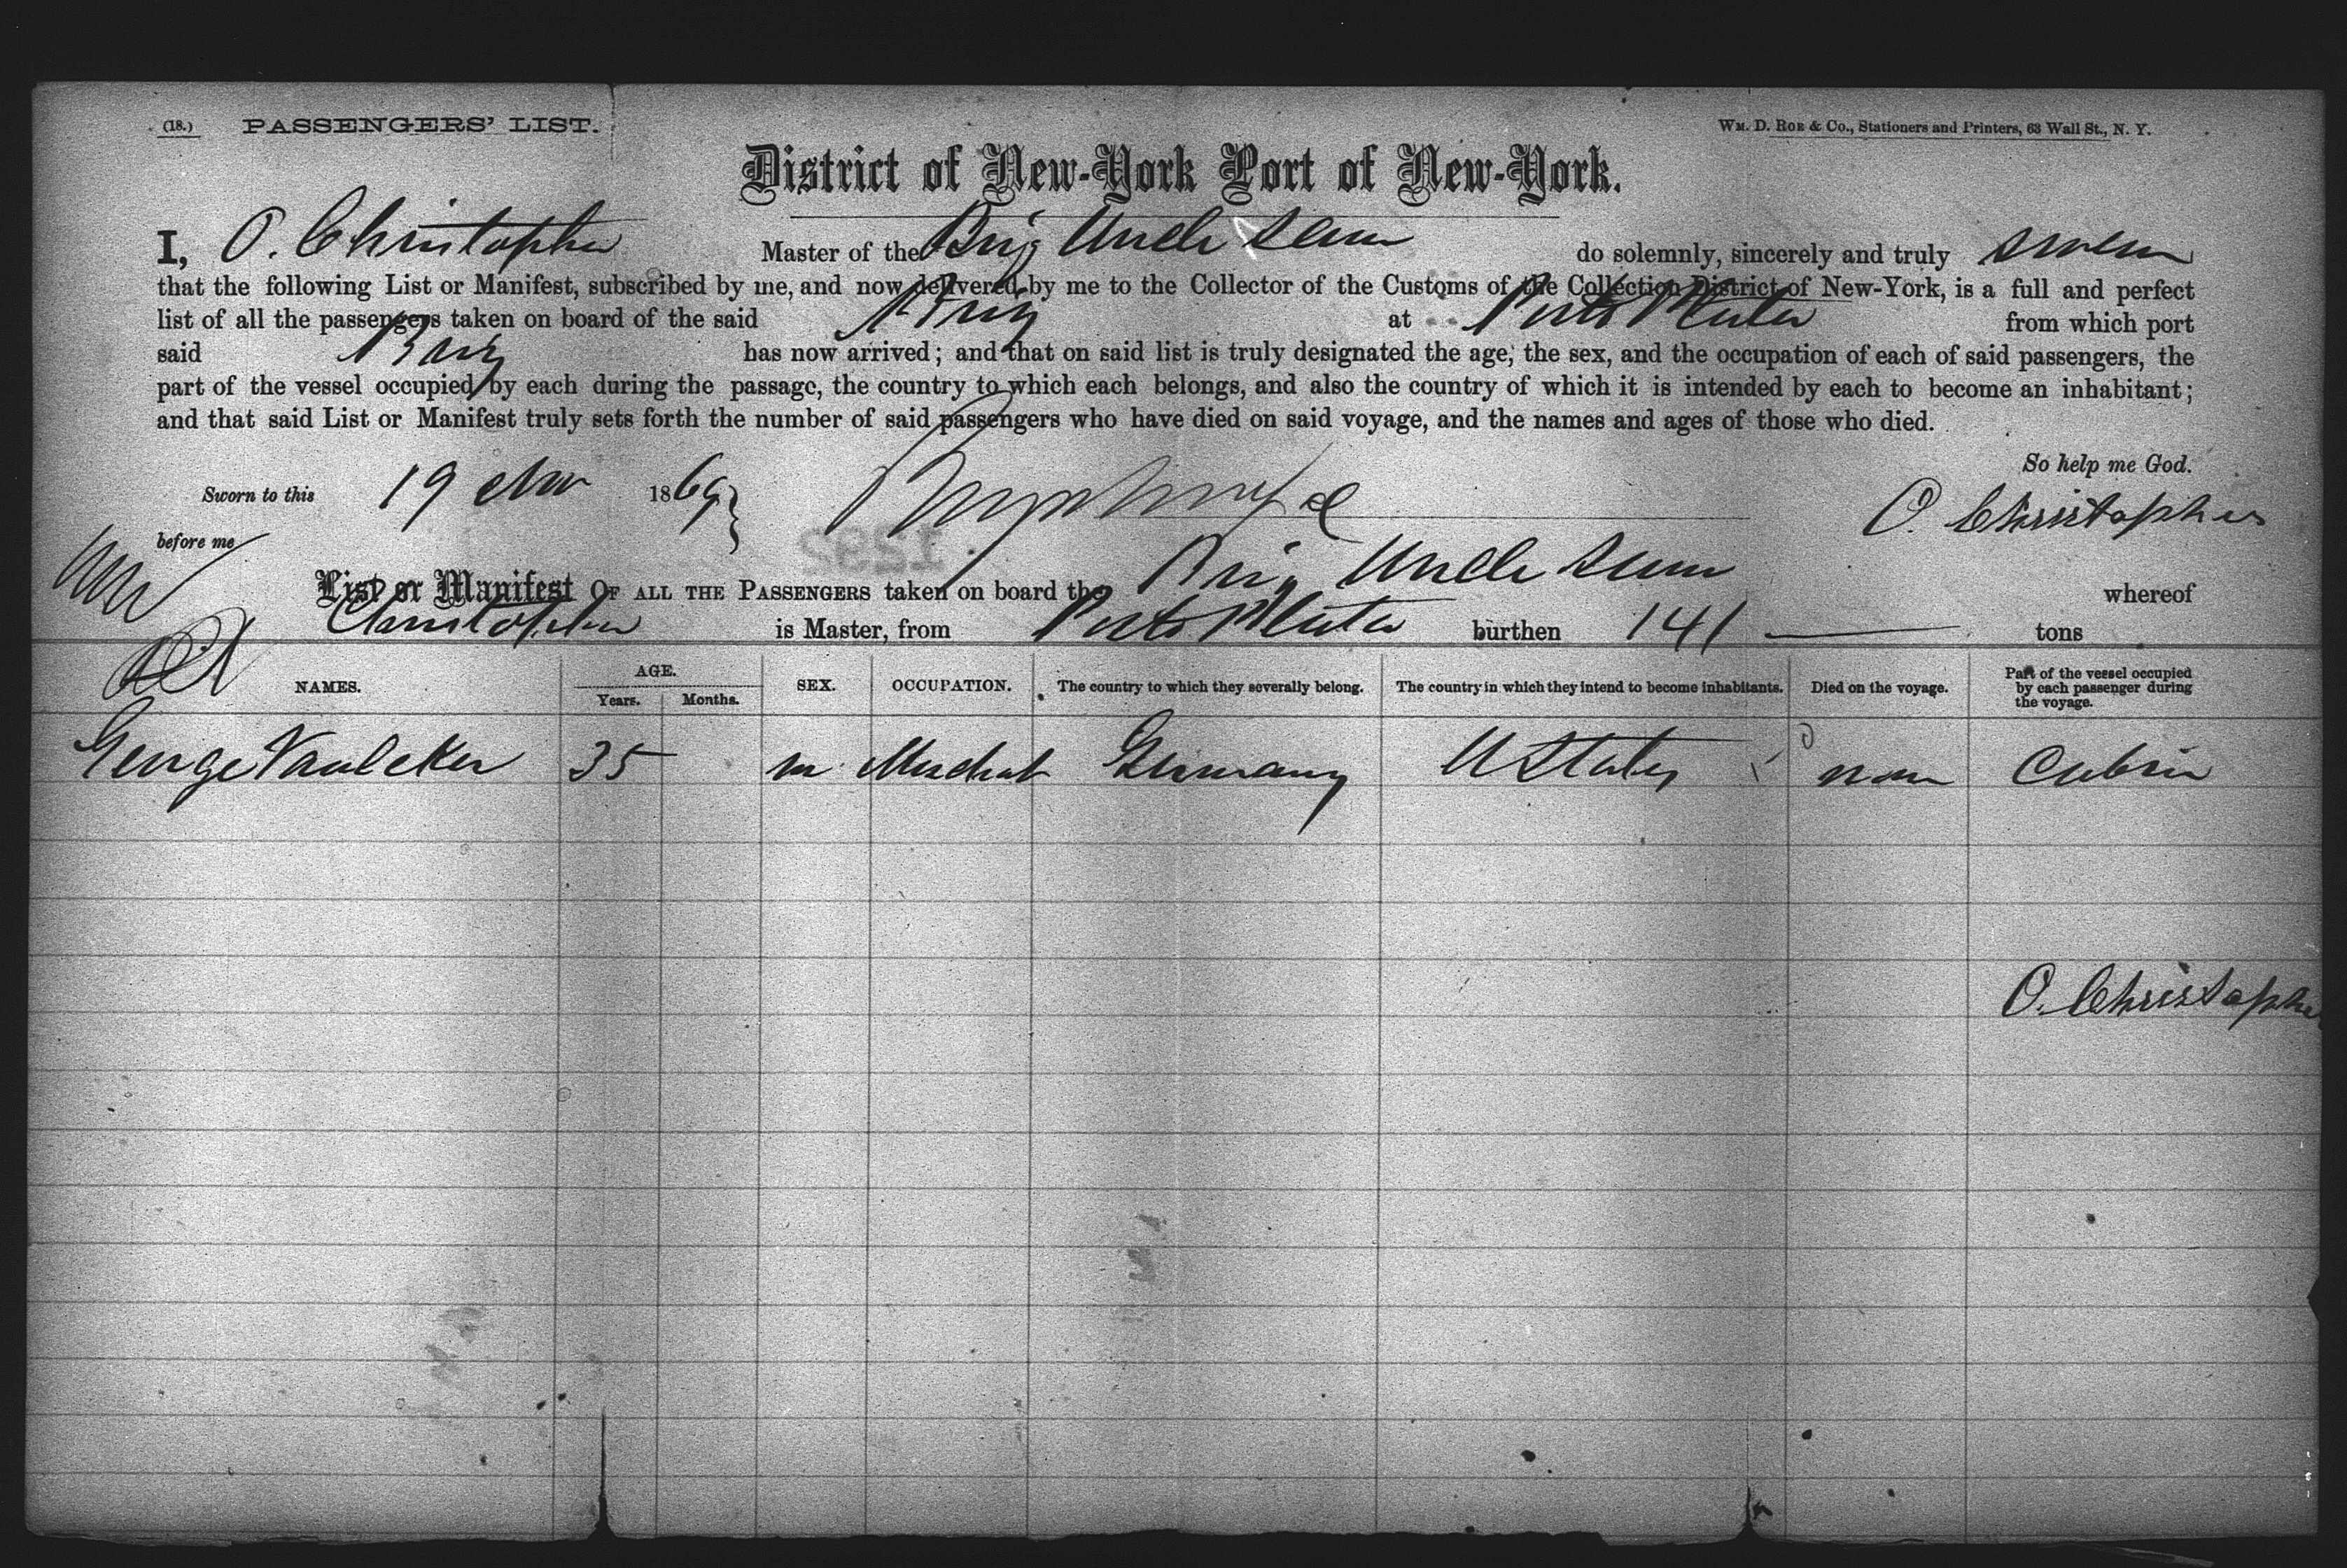 (18.) PASSENGERS' LIST. WM. D. ROE & CO., Stationers and Printers, 63 Wall St., N. Y.
District of New-York Port of New-York.
I, O. Christopher Master of the Brig Uncle Sam do solemnly, sincerely and truly swear
that the following List or Manifest, subscribed by me, and now delivered by me to the Collector of the Customs of the Collection District of New-York, is a full and perfect
list of all the passengers taken on board of the said Brig at Porto Plata from which port
said Brig has now arrived; and that on said list is truly designated the age, the sex, and the occupation of each of said passengers, the
part of the vessel occupied by each during the passage, the country to which each belongs, and also the country of which it is intended by each to become an inhabitant;
and that said List or Manifest truly sets forth the number of said passengers who have died on said voyage, and the names and ages of those who died.
So help me God.
Sworn to this 19 Nov 1869
O. Christopher
before me
List or Manifest OF ALL THE PASSENGERS taken on board the Brig Uncle Sam whereof
Christopher is Master, from Porto Plata burthen 141 tons
NAMES. AGE. Years. Months. SEX. OCCUPATION. The country to which they severally belong. The country in which they intend to become inhabitants. Died on the voyage. Part of the vessel occupied by each passenger during the voyage.
George 35 m Merchat Germany U States non Cabin
O. Christopher